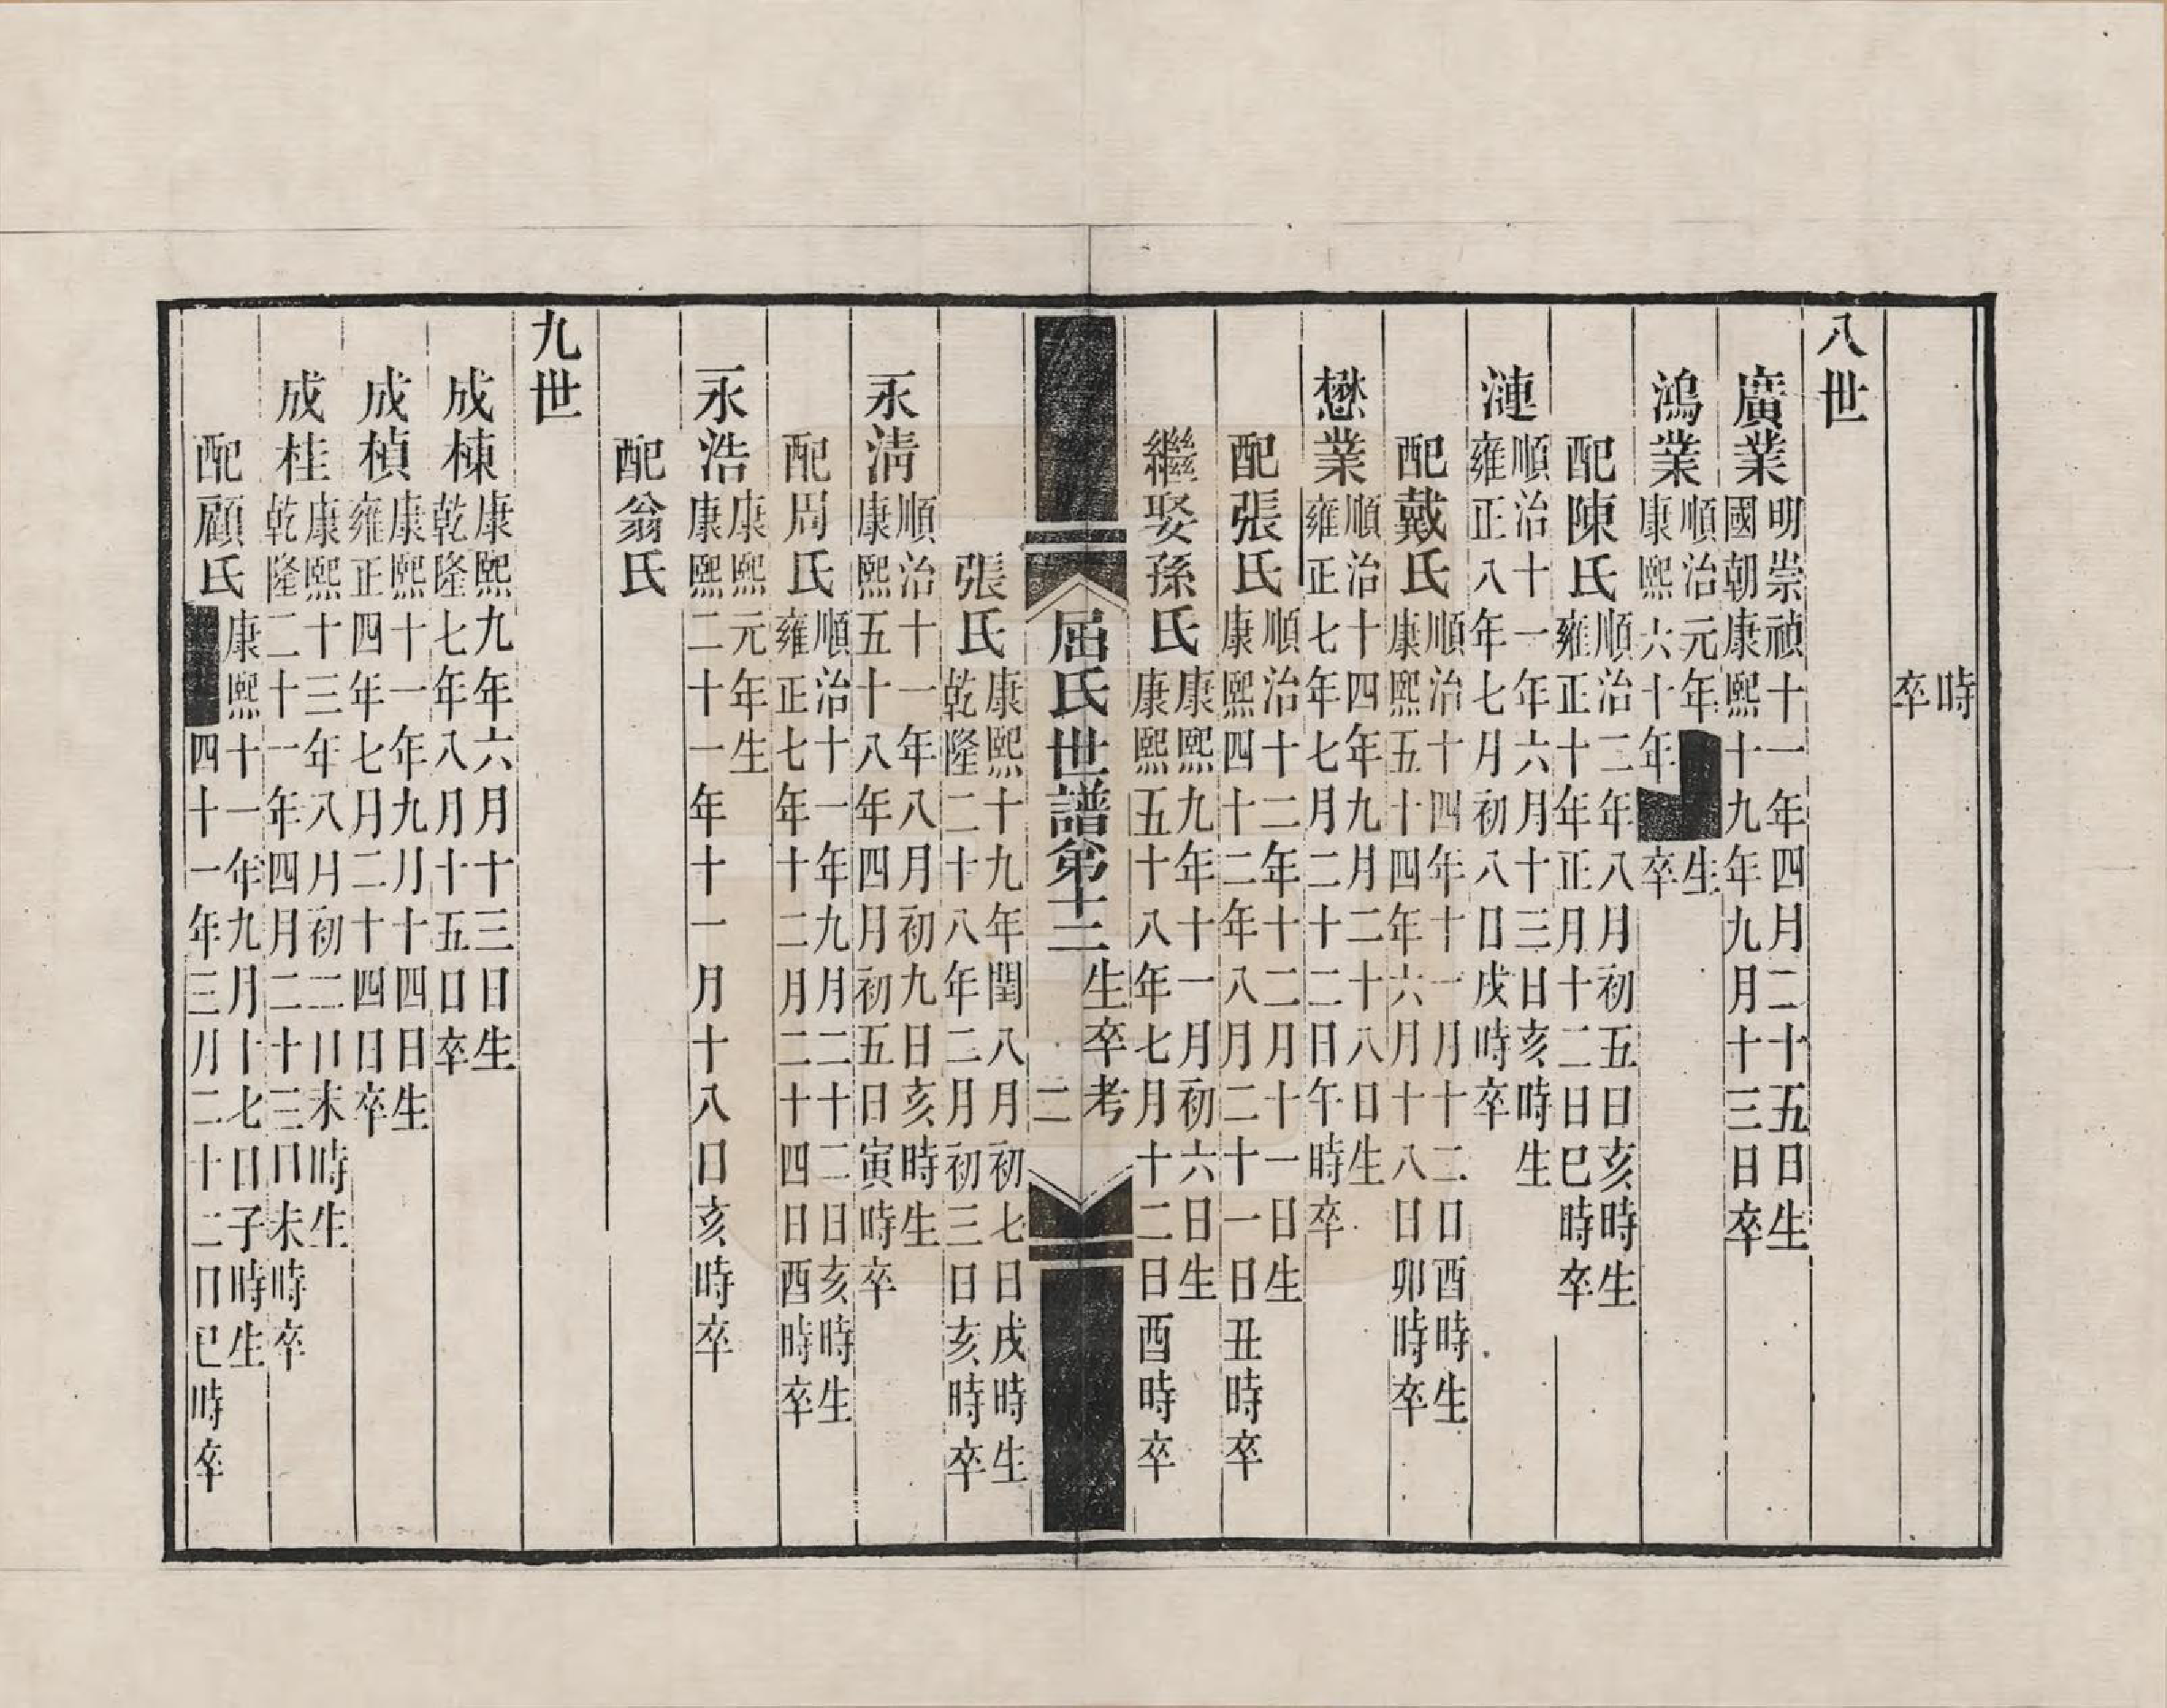 時
卒
八世
廣業
明崇禎十一年四月二十五日生
國朝康熙十九年九月十三日卒
鴻業
順治元年生
康熙六十年卒
配陳氏
順治二年八月初五日亥時生
雍正十年正月十二日巳時卒
漣
順治十一年六月十三日亥時生
雍正八年七月初八日戌時卒
配戴氏
順治十四年十一月十二日酉時生
康熙五十四年六月十八日卯時卒
懋業
順治十四年九月二十八日生
雍正七年七月二十二日午時卒
配張氏
順治十二年十二月十一日生
康熙四十二年八月二十一日丑時卒
繼娶孫氏
康熙九年十一月初六日生
康熙五十八年七月十二日酉時卒
屈氏世譜第十三
生卒考
二
張氏
康熙十九年閏八月初七日戌時生
乾隆二十八年二月初三日亥時卒
永淸
順治十一年八月初九日亥時生
康熙五十八年四月初五日寅時卒
配周氏
順治十一年九月二十二日亥時生
雍正七年十二月二十四日酉時卒
永浩
康熙元年生
康熙二十一年十一月十八日亥時卒
配翁氏
九世
成棟
康熙九年六月十三日生
乾隆七年八月十五日卒
成楨
康熙十一年九月十四日生
雍正四年七月二十四日卒
成桂
康熙十三年八月初二日未時生
乾隆二十一年四月二十三日未時卒
配顧氏
康熙十一年九月十七日子時生
四十一年三月二十二日巳時卒